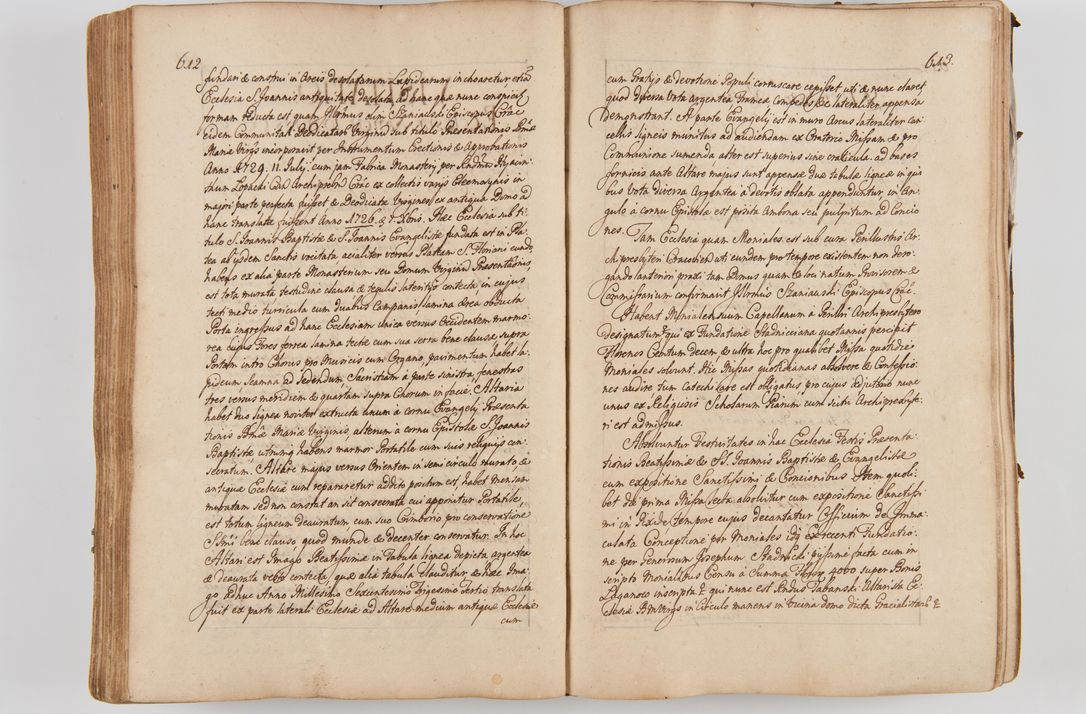 612
fundari & construi in Areis desolatarum Lapidearum inchoaretur etiã
Ecclesia S. Joannis antiquitate desolata ad hanc quæ nunc conspicitur
formam reducta est quam Illustrissimus olim Szaniauski Episcopus Crac
eidem Communitati Dedicatarum Virginum sub titulo Præsentationis Bmæ
Mariæ Virgis incorporavit per Instrumentum Erectionis & Approbationis
Anno 1729. 11. Julij. cum jam Fabrica Monasterij per Rndum Hyacin:
thum Lopacki Archipresb Crac ex collectis varijs Eleemosynis in
majori parte perfecta fuisset & Dedicatæ Virgines ex antiqua Domo ad
hanc translatæ fuissent Anno 1726. Xbris. Hæc Ecclesia sub ti:
tulo S. Joannis Baptistæ & S. Joannis Evangelistæ fundata est in Pla:
tea ab ijsdem Sanctis vocitata acialiter versus Plateam S. Floriani eundo
habens ex alia parte Monasterium seu Domum Virginum Præsentationis,
est tota murata testudine clausa & tegulis lateritijs contecta in cujus
tecti medio turricula cum duabus Campanis lamina ærea obducta
Porta ingressus ad hanc Ecclesiam unica versus Occidentem marmo:
rea cujus Fores ferrea lamina tectæ cum sua sera bene clausa supra
Portam intro Chorus pro Musicis cum Organo, pavimentum habet la:
pideum scamna ad sedendum, Sacristiam à parte sinistra, fenestras
tres versus meridiem & quartam supra Chorum in facie. Altaria
habet duo lignea noviter extructa unum à cornu Evangelij Præsenta
tionis Bmæ Mariæ Virginis, alterum à cornu Epistolæ S. Joannis
Baptistæ utrumque habens marmor Portatile cum suis reliquijs con:
secratum. Altare majus versus Orientem in semi circulo murato, &
antiquæ Ecclesiæ cum repararetur addito positum est, habet mensam
muratam sed non constat an sit consecrata cui apponitur Portatile,
est totum ligneum deauratum cum suo Cimborio pro conservatione
SSmi bene clauso quod munde & decenter conservatur. In hoc
Altari est Imago Beatissimæ in Tabula lignea depicta argentea
& deaurata veste contecta, quæ alia tabula clauditur, & hæc Ima:
go adhuc Anno Millesimo Sexcentesimo Trigesimo Tertio translata
fuit ex parte laterali Ecclesiæ ad Altare medium antiquæ Ecclesiæ
cum
613.
cum Gratijs & devotione Populi coruscare cepisset uti & nunc claret
quod diversa Vota argentea Franceæ Compedes &c lateraliter appensa
demonstrant. A parte Evangelij est in muro Arcus lateraliter can:
cellis ligneis munitus ad audiendam ex Oratorio Missam & pro
Communione sumenda alter est superius sine craticula. ad bases
fornicis ante Altare majus sunt appensæ duæ tabulæ ligneæ in qui:
bus Vota diversa Argentea à devotis oblata appenduntur, in An:
gulo à cornu Epistolæ est posita Ambona seu pulpitum ad Concio
nes. Tam Ecclesia quam Moniales est sub cura Perillustris Ar:
chipresbyteri Cracovien uti eundem pro tempore existentem non dero:
gando anteriori praxi tam Domus quam & loci natum Provisorem &
Commissarium confirmavit Illustrissimus Szaniauski Episcopus Crac.
Habent Moniales suum Capellanum à Perillri Archipresbytero
designatum qui ex Fundatione Stadnicciana quotannis percipit
Florenos Centum decem & ultra hoc pro qualibet Missa quotidie
Moniales solvunt. Hic Missas quotidianas absolvere & Confessio:
nes audire tum Catechisare est obligatus, pro cujus adjutorio nunc
unus ex Religiosis Scholarum Piarum cum scitu Archipresbyte:
ri est admissus.
Absolvuntur Festivitates in hac Ecclesia Festis Præsenta:
tionis Beatissimæ & SS. Joannis Baptistæ & Evangelistæ
cum expositione Sanctissimi & Concionibus Item quoli:
bet die prima Missa lecta absolvitur cum expositione Sanctissi:
mi in Pixide tempore cujus decantatur Officium de Imma:
culata Conceptione per Moniales idque ex recenti Fundatio:
ne per Generosum Josephum Stadnicki pijssime facta cum in
scripto Monialibus Censu à Summa Floren 4000 super Bonis
Łaganow inscripta qui nunc est Rndus Tabanski Altarista Ec:
clesiæ B.M.Virgs in Circulo manens in vicina domo dicta Gracialistarũ